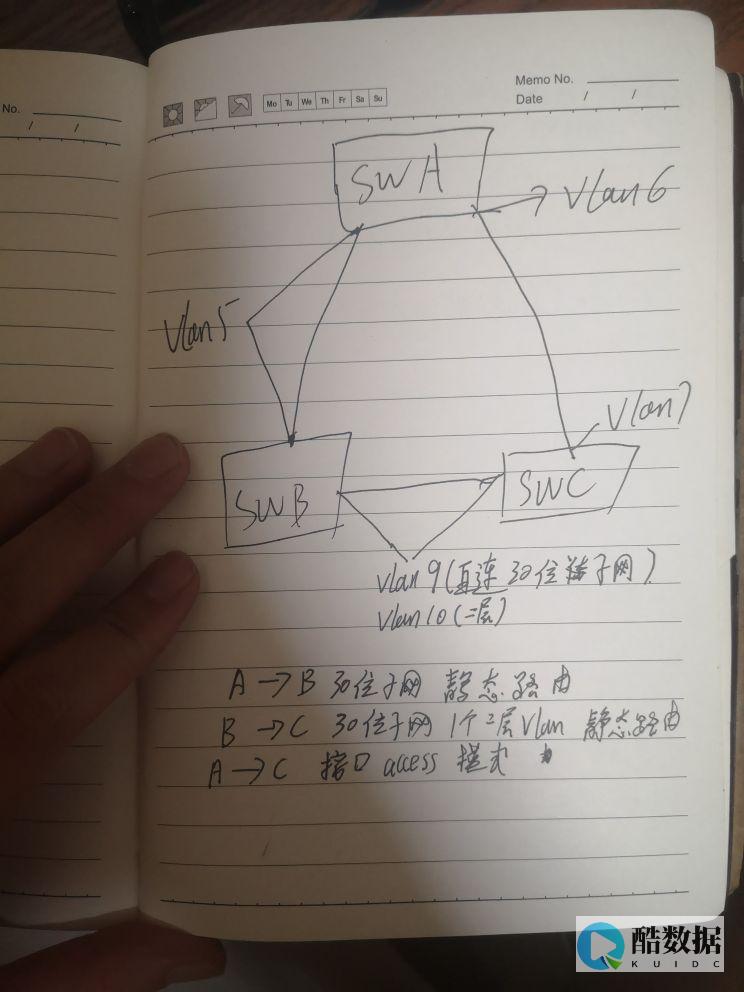 No.
/ /
Mo Tu We Th Fr Sa Su
Memo No.
Date / /
SWA
Vlan6
Vlan5
Vlan7
SWB
SWC
vlan9(直连 30位 子网)
vlan10(二层)
A→B 30位子网 静态路由
B→C 30位子网 1个二层Vlan 静态路由
A→C 接口 access 模式
酷数据
KUIDC